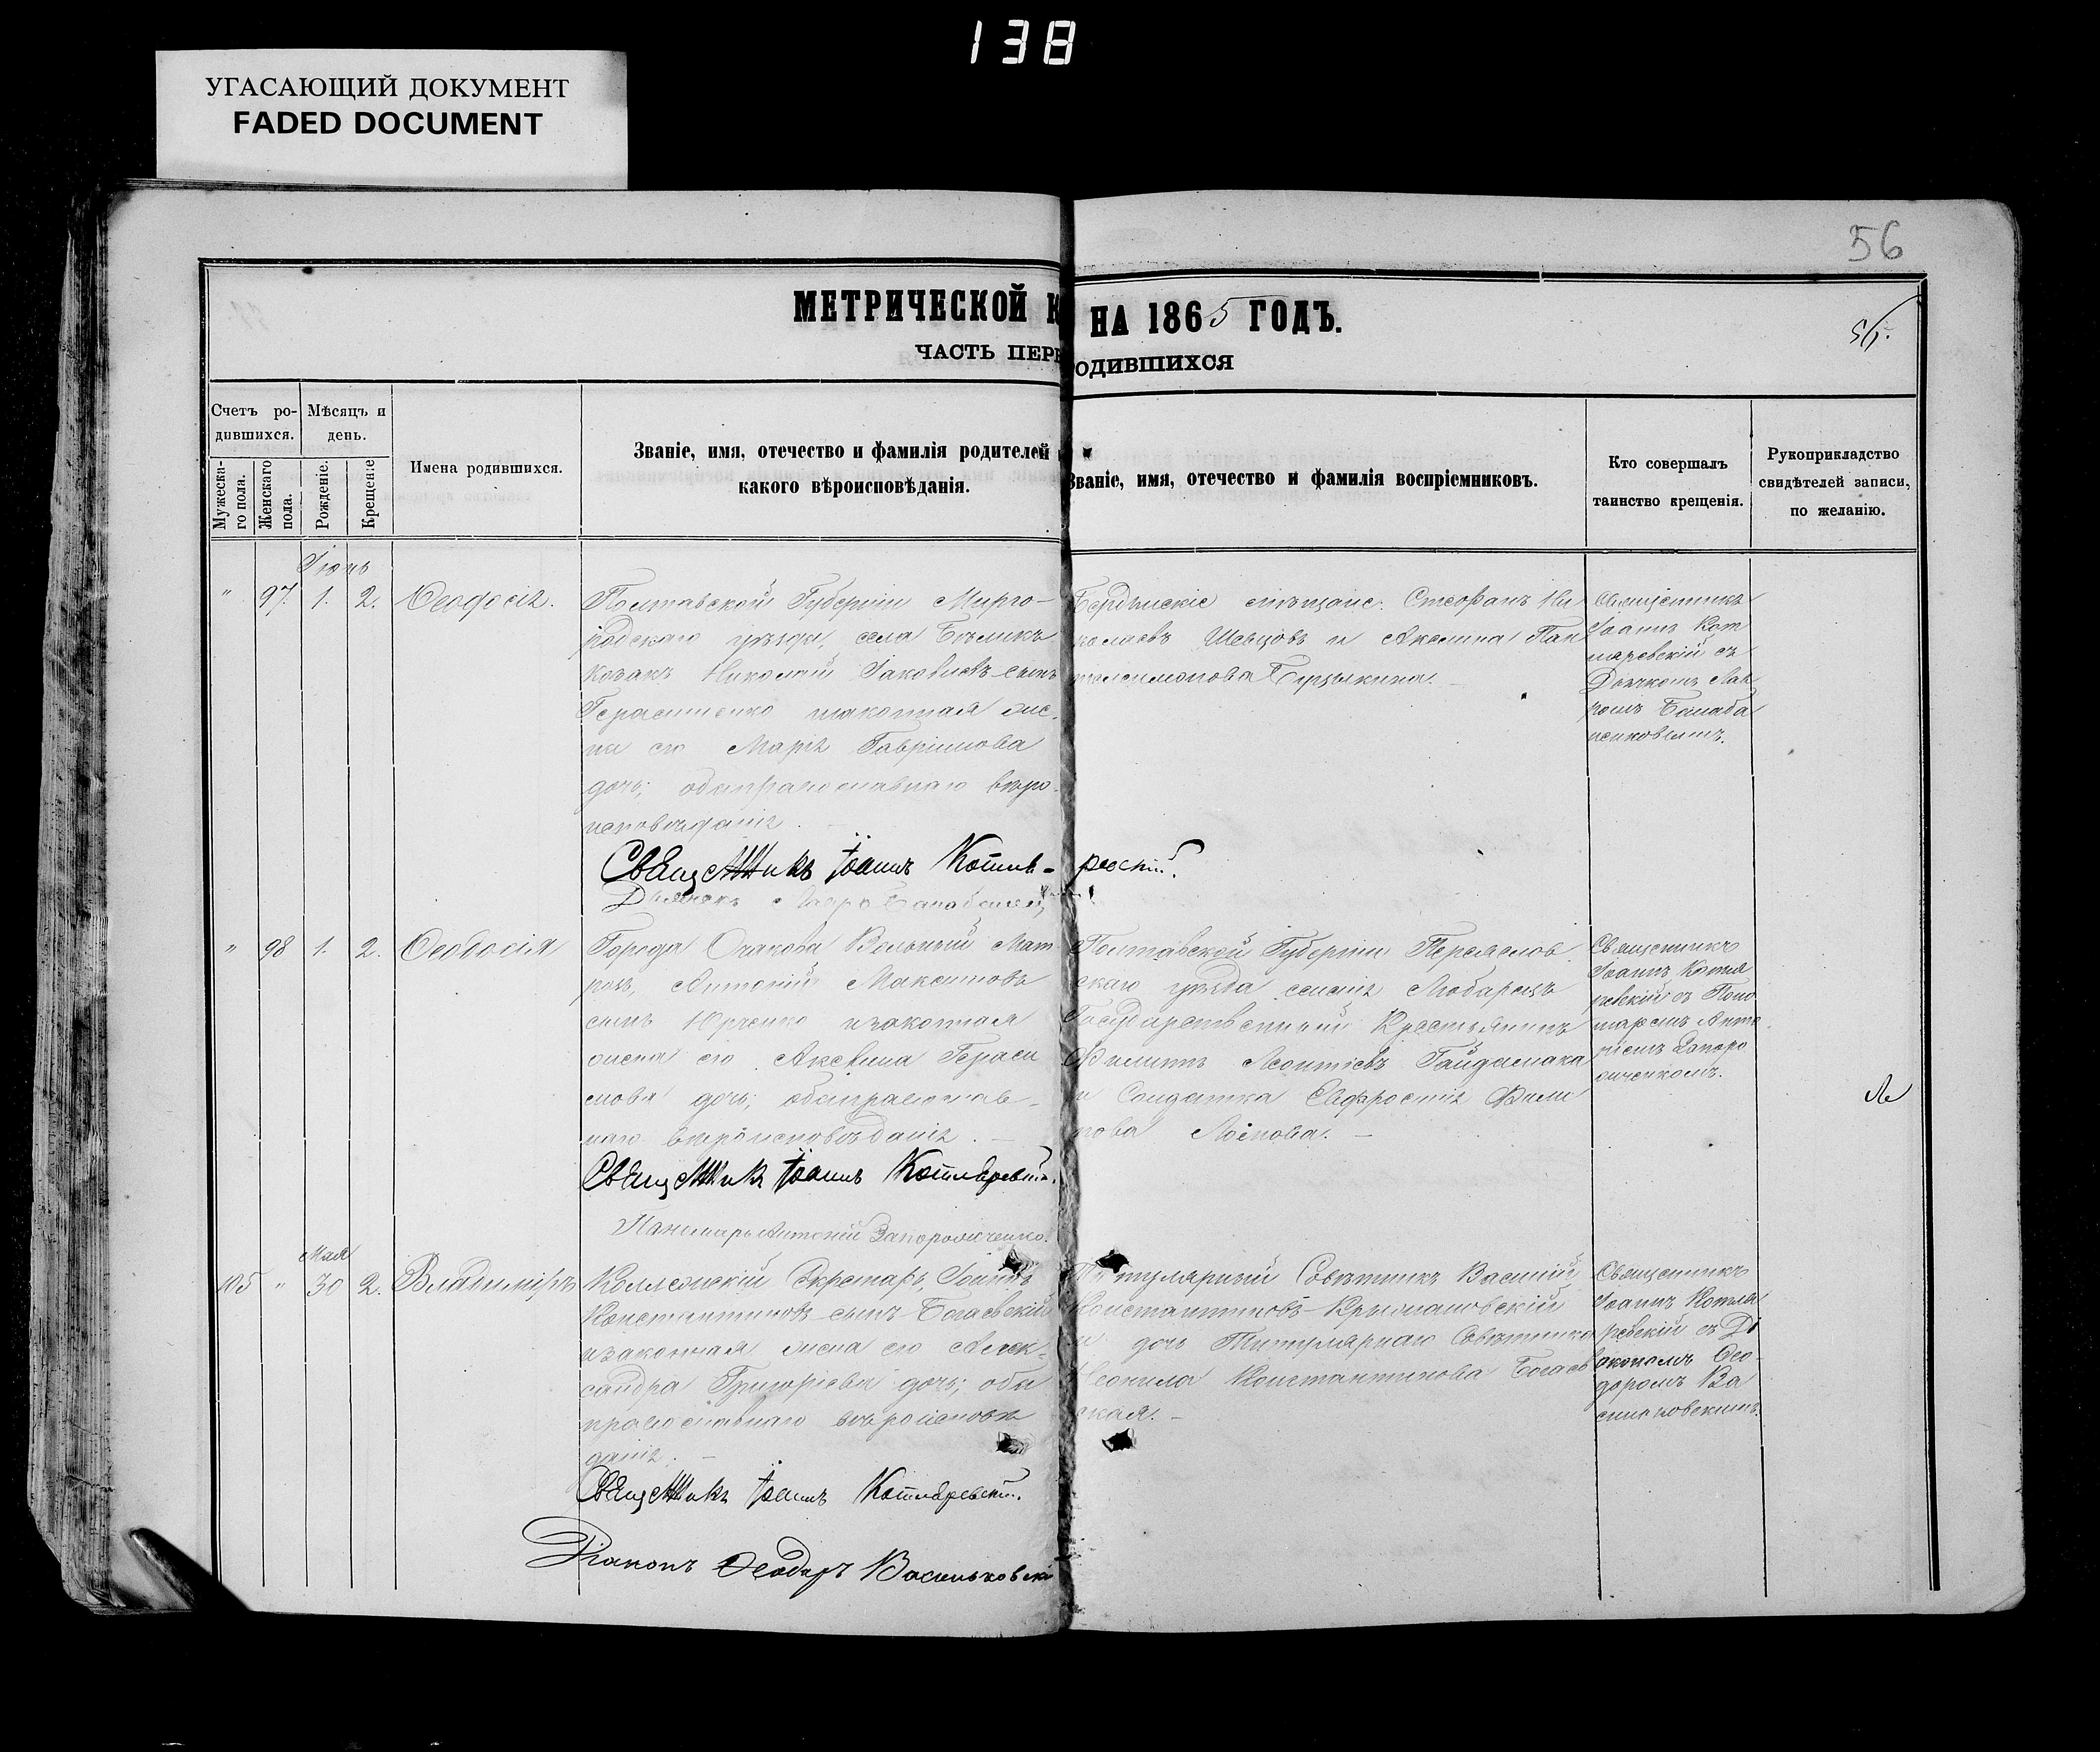 138
УГАСАЮЩИЙ ДОКУМЕНТ
FADED DOCUMENT
56
МЕТРИЧЕСКОЙ К НА 1865 ГОДЪ.
56.
ЧАСТЬ ПЕРВ ОДИВШИХСЯ
Счетъ ро-
дившихся.
Мужеска-
го пола.
Женскаго
пола.
Мѣсяцъ и
день.
Рожденіе.
Крещеніе
Имена родившихся.
Званіе, имя, отечество и фамилія родителей и
какого вѣроисповѣданія.
Званіе, имя, отечество и фамилія воспріемниковъ.
Кто совершалъ
таинство крещенія.
Рукоприкладство
свидѣтелей записи,
по желанію.
Іюнь
" 97. 1. 2. Ѳеодосія.
Полтавской Губерніи Мирго-
родскаго уѣзда, села
козакъ Николай Іаковлевъ сынъ
Герасименко изаконная жи-
на его Марія Гавріилова
дочь; обаправославнаго вѣро-
исповѣданія.
Священникъ Іоаннъ Котля-ревскій.
Бердянскіе мѣщане: Стефанъ Ни
колаевъ Шевцовъ и Акилина Пан
телеимонова
Священникъ
Іоаннъ Кот
ляревскій съ
Дьячкомъ Лав
ромъ Балаба
ненковымъ.
" 98 1. 2. Ѳеодосія
Города Очакова Вольный Мат
розъ, Антоній Максимовъ
сынъ Юрченко изаконная
жена его Аксенія Гераси
мова дочь; обаправослав-
наго вѣроисповѣданія. —
Священникъ Іоаннъ Котляревскій.
Пономарь Антоній Запорожченко.
Полтавской Губерніи Переяслов
скаго уѣзда селенія Любарецъ
Государственный Крестьянинъ
Филиппъ Леонтіевъ Гайдамака
и Солдатка Евфросинія Фили
пова —
Священникъ
Іоаннъ Котля
ревскій съ Поно
маремъ Анто
ніемъ Запоро
женкомъ.
Мая
105 " 30 2. Владиміръ
Коллежскій Секретарь, Іоаннъ
Константиновъ сынъ Богаевскій
изаконная жена его Алек-
сандра Григорьева дочь; оба
православнаго вѣроисповѣ
данія. —
Священникъ Іоаннъ Котляревскій.
Діаконъ Ѳеодоръ Васильковскі
Титулярный Совѣтникъ Василій
Константиновъ Крыжановскій
и дочь Титулярнаго Совѣтника
Неонила Константинова Богаев
ская. —
Священникъ
Іоаннъ Котля
ревскій съ Ді
акономъ Ѳео-
доромъ Ва
сильковскимъ.